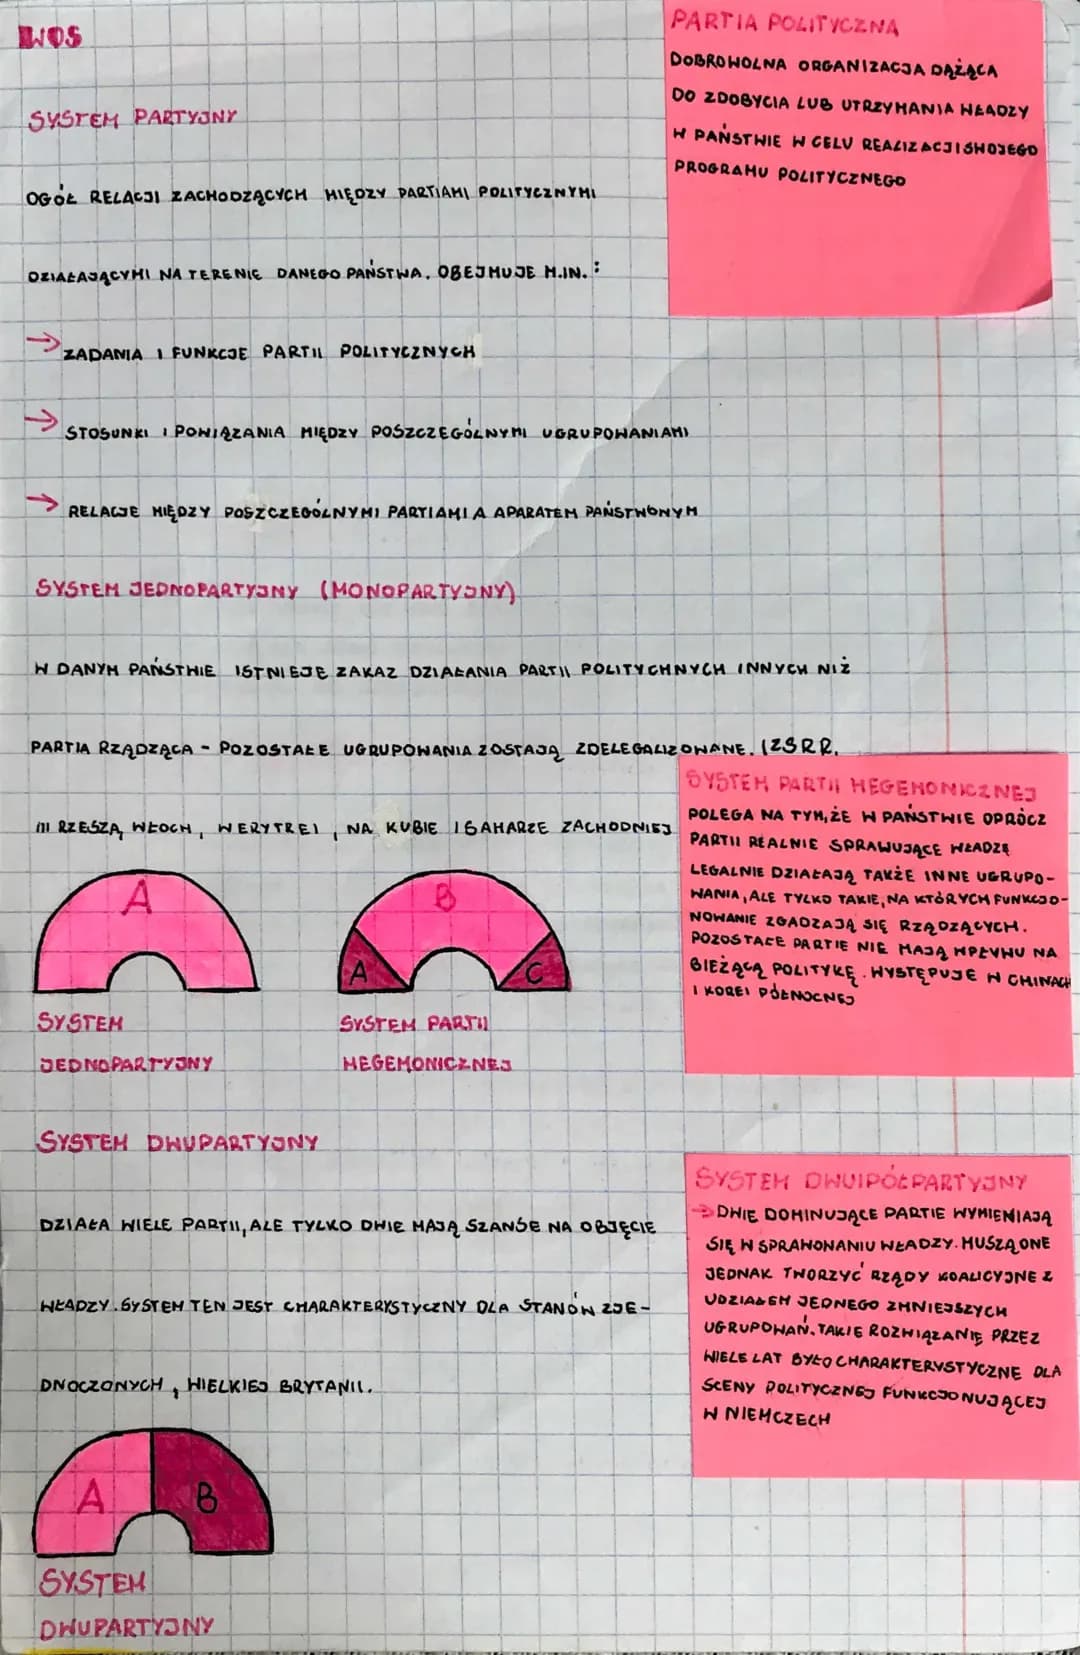 WOS
PARTIA POLITYCZNA
DOBROWOLNA ORGANIZACJA DĄŻĄCA
DO ZDOBYCIA LUB UTRZYMANIA WŁADZY
W PAŃSTWIE W CELU REALIZACJI SWOJEGO
PROGRAMU POLITYCZNEGO
SYSTEM PARTYJNY
OGÓŁ RELACJI ZACHODZĄCYCH MIĘDZY PARTIAMI POLITYCZNYMI
DZIAŁAJĄCYMI NA TERENIE DANEGO PAŃSTWA. OBEJMUJE M.IN.:
→ ZADANIA I FUNKCJE PARTII POLITYCZNYCH
→ STOSUNKI I POWIĄZANIA MIĘDZY POSZCZEGÓLNYMI UGRUPOWANIAMI
→ RELACJE MIĘDZY POSZCZEGÓLNYMI PARTIAMI A APARATEM PAŃSTWONYM
SYSTEM JEDNOPARTYJNY (MONOPARTYJNY)
W DANYM PAŃSTWIE ISTNIEJE ZAKAZ DZIAŁANIA PARTII POLITYCHNYCH INNYCH NIŻ
PARTIA RZĄDZĄCA - POZOSTAŁE UGRUPOWANIA ZOSTAJĄ ZDELEGALIZOWANE. (ZSRR,
III RZESZĄ, WŁOCH, WERYTREI, NA KUBIE I SAHARZE ZACHODNIEJ
SYSTEM PARTII HEGEMONICZNEJ
POLEGA NA TYM, ŻE W PAŃSTWIE OPRÓCZ
PARTII REALNIE SPRAWUJĄCE WŁADZĘ
LEGALNIE DZIAŁAJĄ TAKŻE INNE UGRUPO-
WANIA, ALE TYLKO TAKIE, NA KTÓRYCH FUNKCJO-
NOWANIE ZGADZAJĄ SIĘ RZĄDZĄCYCH.
POZOSTAŁE PARTIE NIE MAJĄ WPŁYWU NA
BIEŻĄCĄ POLITYKĘ. WYSTĘPUJE W CHINACH
I KOREI PÓŁNOCNEJ
A
B
A
C
SYSTEM
JEDNOPARTYJNY
SYSTEM PARTII
HEGEMONICZNEJ
SYSTEM DWUPARTYJNY
DZIAŁA WIELE PARTII, ALE TYLKO DWIE MAJĄ SZANSE NA OBJĘCIE
WŁADZY. SYSTEM TEN JEST CHARAKTERYSTYCZNY DLA STANÓW ZJE-
DNOCZONYCH, WIELKIEJ BRYTANII.
SYSTEM DWUIPÓŁPARTYJNY
→ DWIE DOMINUJĄCE PARTIE WYMIENIAJĄ
SIĘ W SPRAWONANIU WŁADZY. MUSZĄ ONE
JEDNAK TWORZYĆ RZĄDY KOALICYJNE Z
UDZIAŁEM JEDNEGO ZMNIEJSZYCH
UGRUPOWAŃ. TAKIE ROZWIĄZANIE PRZEZ
WIELE LAT BYŁO CHARAKTERYSTYCZNE DLA
SCENY POLITYCZNEJ FUNKCJONUJĄCEJ
W NIEMCZECH
A
B
SYSTEM
DWUPARTYJNY